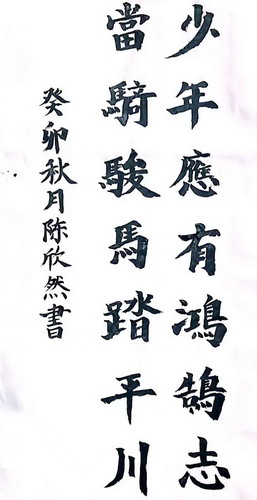 少年應有鴻鵠志
當騎駿馬踏平川
癸卯秋月陈欣然書